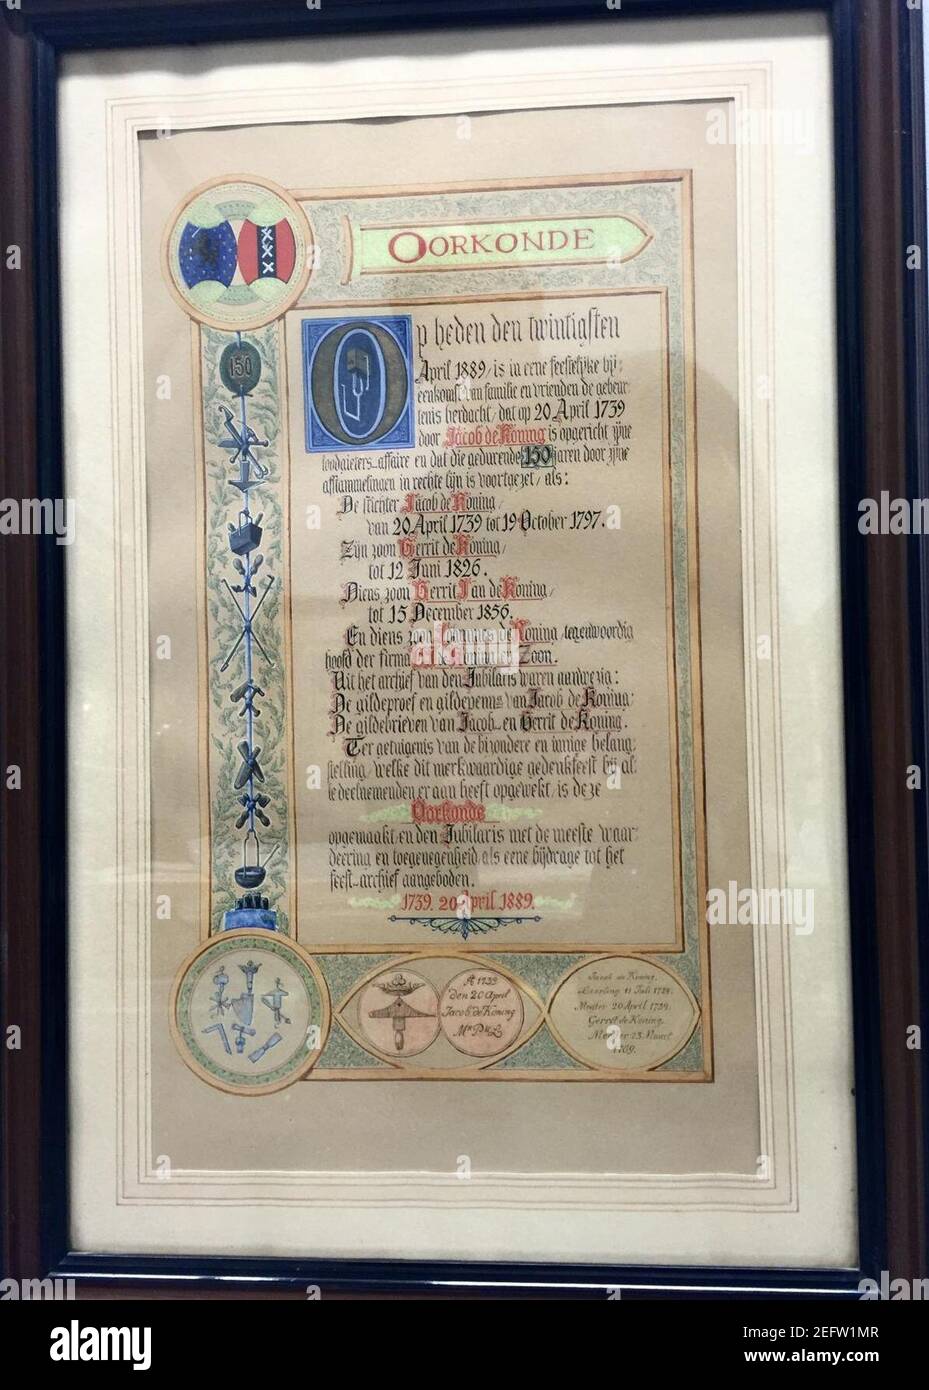 OORKONDE
Op heden den twintigsten
April 1889/is in eene feestelijke bij-
eenkomst van familie en vrienden de gebeur-
tenis herdacht, dat op 20 April 1739
door Jacob de Koning is opgericht zijne
loodgieters-affaire en dat die gedurende 150 jaren door zijne
afstammelingen in rechte lijn is voortgezet/ als:
De stichter Jacob de Koning/
van 20 April 1739 tot 19 October 1797.
Zijn zoon Gerrit de Koning/
tot 12 Juni 1826.
Diens zoon Gerrit Jan de Koning/
tot 15 December 1856.
En diens zoon Johannes de Koning, tegenwoordig
hoofd der firma de Koning en Zoon.
Uit het archief van den Jubilaris waren aanwezig:
De gildeproef en gildepenng van Jacob de Koning:
De gildebrieven van Jacob en Gerrit de Koning.
Ter getuigenis van de bizondere en innige belang-
stelling/ welke dit merkwaardige gedenkfeest bij al-
le deelnemenden er aan heeft opgewekt, is deze
Oorkonde
opgemaakt en den Jubilaris met de meeste waar-
deering en toegenegenheid als eene bijdrage tot het
feest-archief aangeboden.
1739. 20 April 1889.
150
A° 1739
den 20 April
Jacob de Koning
Mr P. & L.
Jacob de Koning.
Leerling 11 Juli 1728.
Meester 20 April 1739.
Gerrit de Koning.
Meester 23. Maart
1769.
alamy
Image ID: 2EFW1MR
www.alamy.com